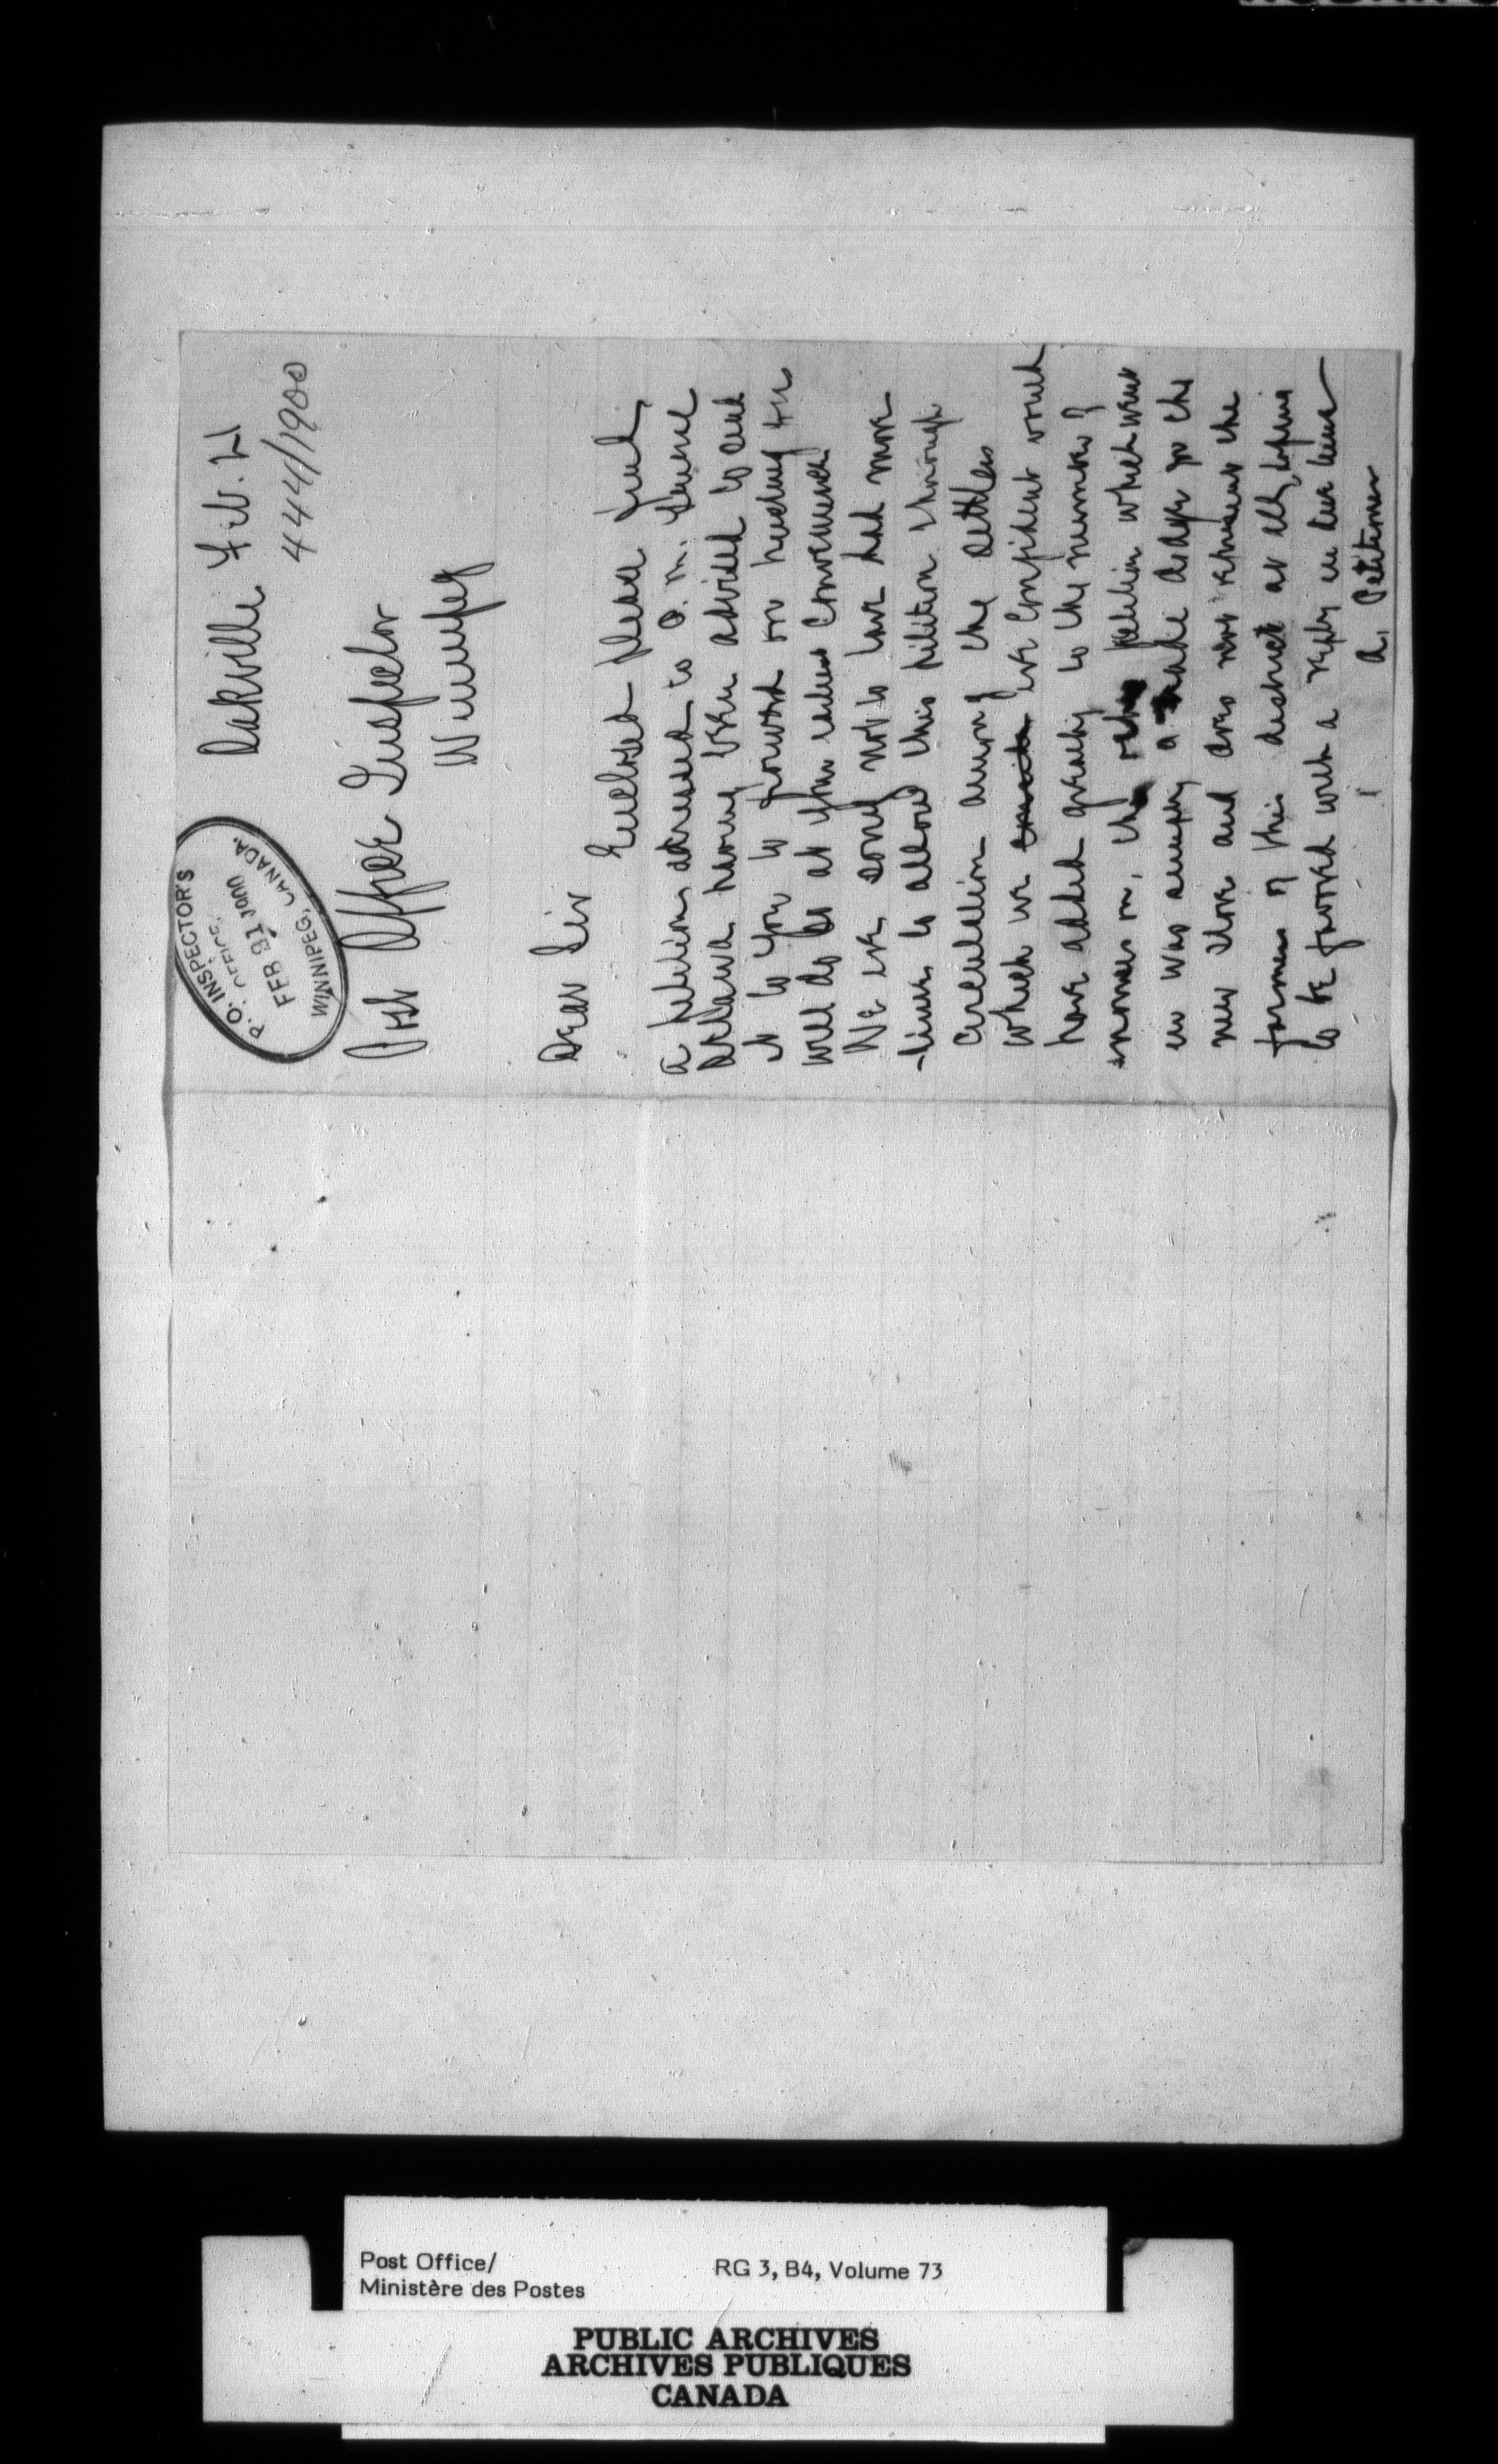 P.O. INSPECTOR'S
OFFICE,
FEB 21 1900
WINNIPEG, CANADA.
Oakville Feb. 21
444/1900
Post Office Inspector
Winnipeg
Dear Sir
Enclosed please find,
a petition addressed to P. M. General
Ottawa having been advised to send
it to you to forward on trusting you
will do so at your earliest convenience
We are sorry not to have had more
-time to allow this petition through
circulation among the settlers
which we are confident would
have added greatly to the number of
names on, the petition which went
in was simply a
new store and does not represent the
farmers of this district at all, hoping
to be favored with a reply in due time
A. Petitioner
Post Office/
Ministère des Postes
RG 3, B4, Volume 73
PUBLIC ARCHIVES
ARCHIVES PUBLIQUES
CANADA